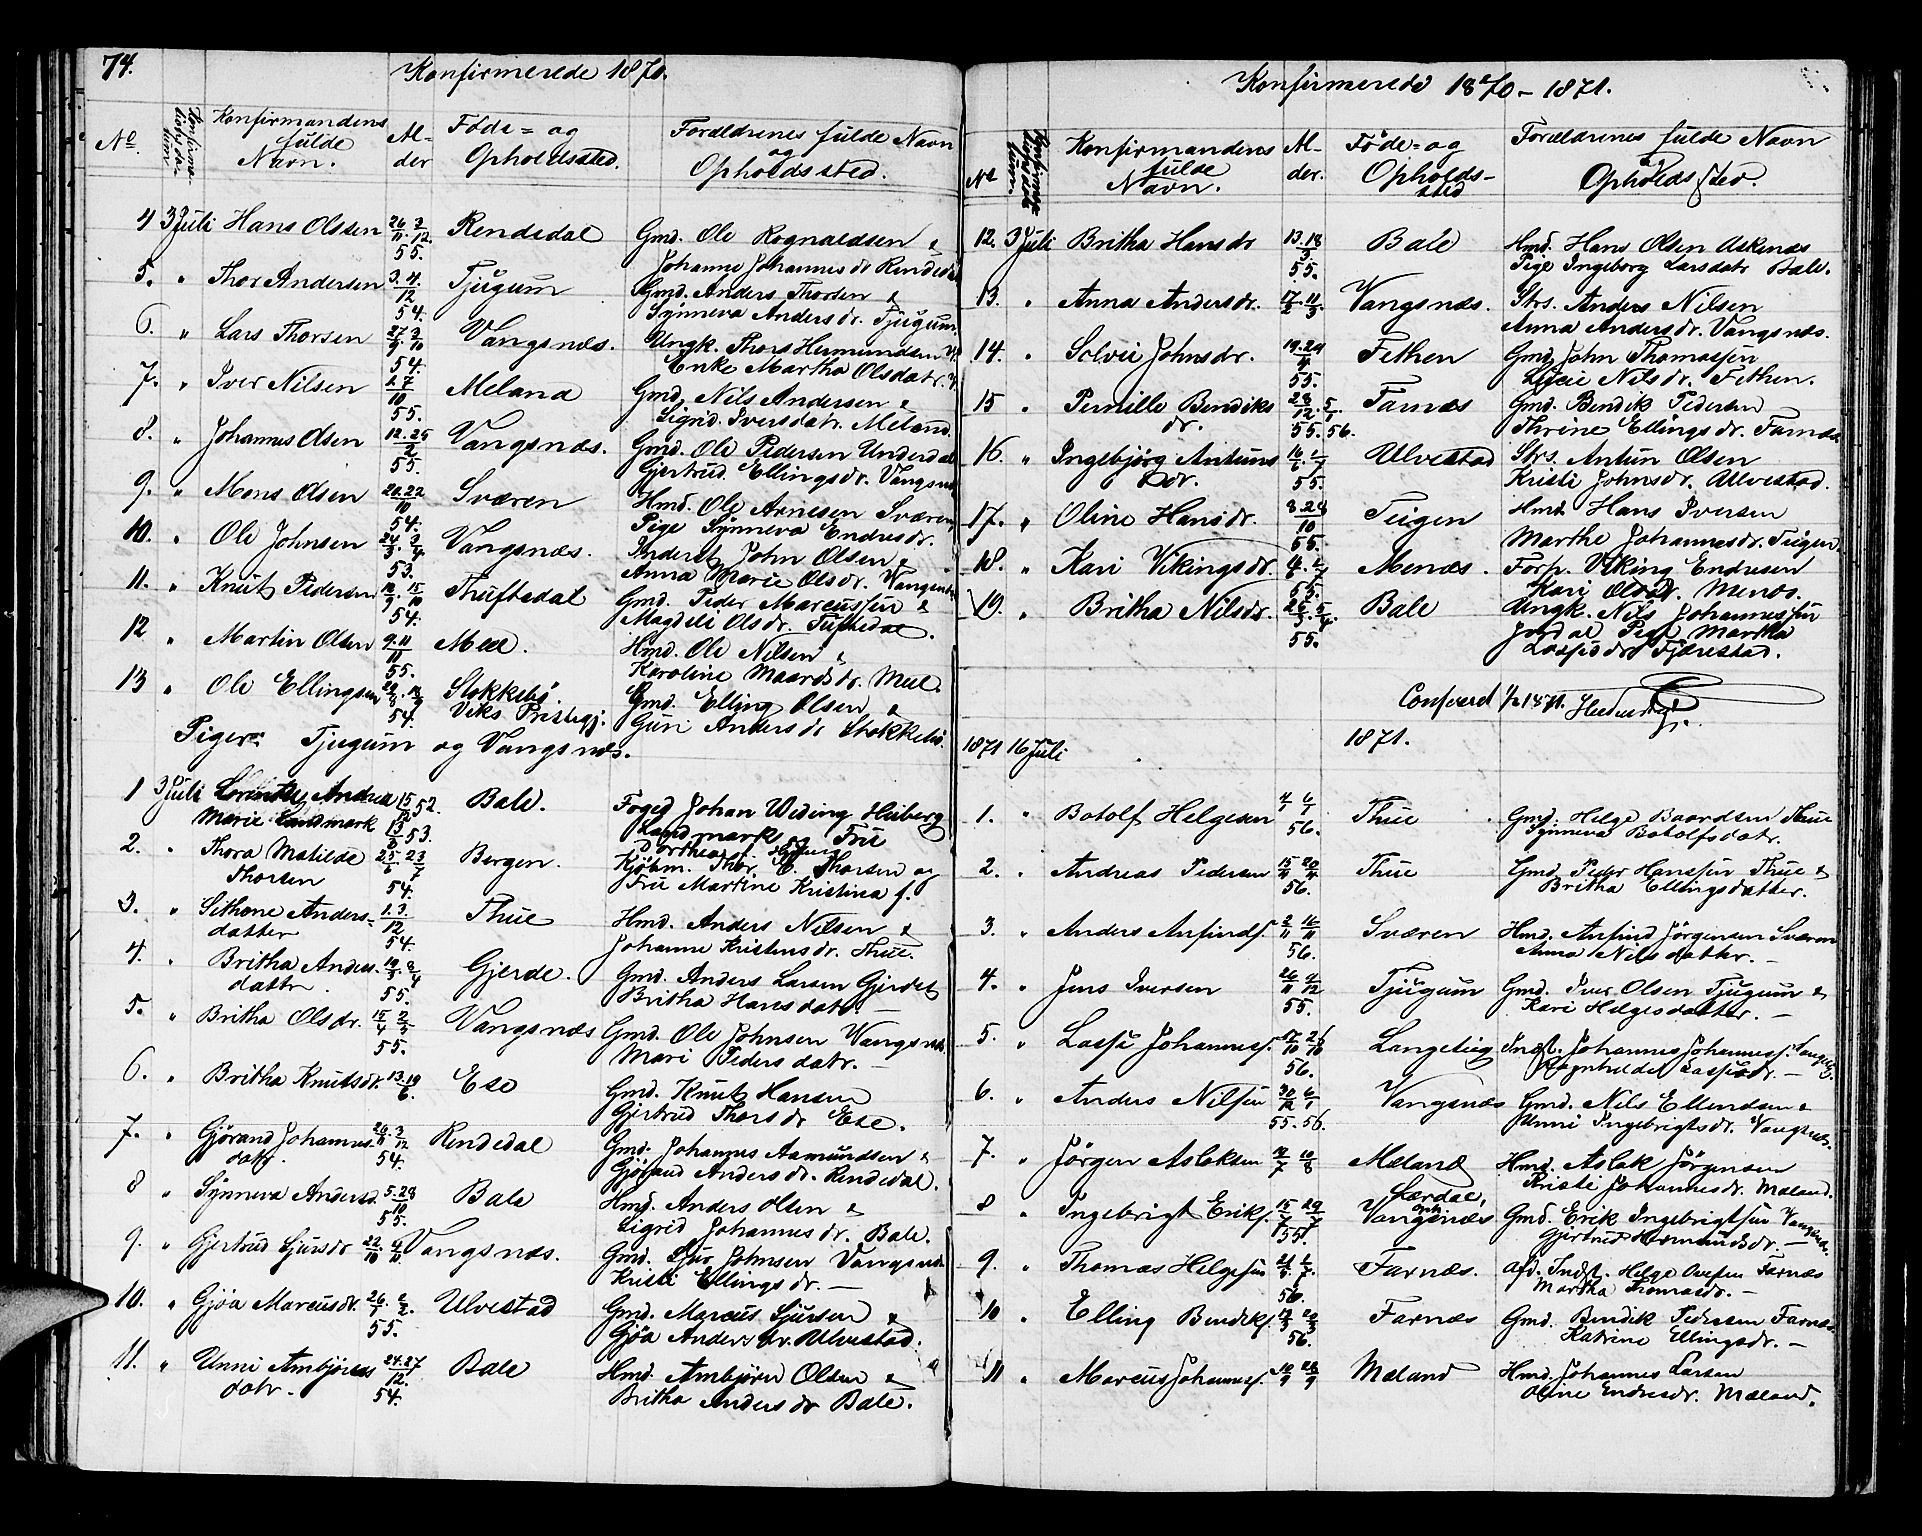 74.
Konfirmerede 1870.
No.
Konfirmandens
fulde
Navn.
Al-
der
Føde- og
Opholdssted.
Forældrenes fulde Navn
og
Opholdssted.
4 3 Juli Hans Olsen 26/11 3/12 55. Rendedal Gmd. Ole Rognaldsen &
Johanne Johannesdr Rendedal
5. " Thor Andersen 3. 4./12 54. Tjugum Gmd. Anders Thorsen &
Synneva Andersdr. Tjugum.
6. " Lars Thorsen 27/9 3/10 54. Vangsnæs. Ungk. Thors Hermundsen
Enke Martha Olsdatr.
7. " Iver Nilsen 1. 7/10 55. Meland Gmd. Nils Andersen &
Sigrid Iversdatr. Meland.
8. " Johannes Olsen 12. 25/2 55. Vangsnæs. Gmd. Ole Pedersen Underdal
Gjertrud Ellingsdr. Vangsnæs
9. " Mons Olsen 20. 22/10 54. Sværen Hmd. Ole Arnesen Sværen
Pige Synneva Endresdr.
10. " Ole Johnsen 24/3. 3/4. 53. Vangsnæs. Inderst John Olsen &
Anna Marie Olsdr. Vangsnæs
11. " Knut Pedersen 15/10 54. Thuftedal Gmd. Peder Marcussen &
Magdeli Olsdr. Tuftedal.
12 " Martin Olsen 9. 11/11 55. Mel. Hmd. Ole Nilsen &
Karoline Maardsdr. Mel.
13 " Ole Ellingsen 54. Stokkebø
Viks Prestegj. Gmd. Elling Olsen &
Guri Andersdr Stokkebø.
Piger: Tjugum og Vangsnæs.
1 3 Juli Andrea
Marie Landmark 15/12 52. 13/2 53. Bale. Foged Johan Widing Heiberg
Landmark og Frue
Dorthea f.
2. " Thora Matilde
Thorsen 25/6 23/7 54. Bergen. Kjøbm. Thor. Thorsen og
Fru Martine Kristina f.
3. " Sithone Anders-
datter 1. 3./12 54. Thue Hmd. Anders Nilsen &
Johanne Kristensdr. Thue.
4. " Britha Anders-
datr. 19/3. 8/4 55. Gjerde. Gmd. Anders Larsen Gjerdet
Britha Hansdatr. —
5. " Britha Olsdr. 15/4 2/5 55. Vangsnæs Gmd. Ole Johnsen Vangsnæs
Mari Pedersdatr. —
6. " Britha Knutsdr. 13. 19/6. Ese Gmd. Knut Hansen
Gjertrud Thorsdr Ese.
7. " Gjørand Johannes-
datr. 26/11 3/12 54. Rendedal Gmd. Johannes Aamundsen &
Gjørand Andersdr. Rendedal.
8 " Synneva Andersd. 5. 28/10 55. Bale Hmd. Anders Olsen &
Sigrid Johannesdr. Bale.
9. " Gjertrud Sjursdr 22/10 Vangsnæs. Gmd. Sjur Johnsen Vangsnæs
Kristi Ellingsdr. —
10. " Gjøa Marcusdr. 26/1 2/2. 55. Ulvestad Gmd. Marcus Sjursen &
Gjøa Andersdr. Ulvestad.
11. " Unni Ambjøns
datr. 24. 27/12. 54. Bale Hmd. Ambjørn Olsen &
Britha Andersdr Bale.
Konfirmerede 1870 - 1871.
No
Konfirmandens
fulde
Navn.
Al-
der.
Føde- og
Opholds-
sted
Forældrenes fulde Navn
og
Opholdssted.
12. 3 Juli Britha Hansdr 13. 18/3 55. Bale Hmd. Hans Olsen Askenæs
Pige Ingeborg Larsdatr Bale.
13. " Anna Andersdr. 17/2. 11/3. Vangsnæs. Strs. Anders Nilsen
Anna Andersdr. Vangsnæs.
14. " Solvei Johnsdr. 19. 29/4 55. Fethen Gmd. John Thomassen
Lucie Nilsdr. Fethen.
15 " Pernille Bendiks
dr. 28/12. 5/1. 55. 56. Farnæs Gmd. Bendik Pedersen
Thrine Ellingsdr. Farnæs
16. " Ingebjørg Antuns
dr. 16/6. 1/7 55. Ulvestad Strs. Antun Olsen
Kristi Johnsdr. Ulvestad.
17. " Oline Hansdr. 8. 28/10 55. Teigen Hmd. Hans Iversen
Marthe Johannesdr. Teigen.
18. " Kari Vikingsdr. 55. Menæs. Forp. Viking Endresen
Kari Olsdr. Menæs.
19. " Britha Nilsdr. 26/3. 5/4. 55. Bale Ungk. Nils Johannessen
Jordal Pige Martha
Lassesdr. Fjærestad.
1871 16 Juli 1871.
1. " Botolf Helgesen 4/1 6/1 56. Thue Gmd. Helge Baardsen Thue
Synneva Botolfsdatr.
2. " Andreas Pedersen 15/4 20/4 56. Thue Gmd. Peder Hanssen Thue &
Britha Ellingsdatter.
3. " Anders Anfinds. 2/11 16/11 56. Sværen Hmd. Anfind Jørgensen Sværen
Anna Nilsdatter. —
4. " Jens Iversen 26/11 9/12 55. Tjugum Gmd. Iver Olsen Tjugum &
Kari Helgesdatter. —
5. " Lasse Johanness. 17/10 26/10 56. Langeteig Indst. Johannes Johanness. Langeteig.
Ragnhilde Lassesdr. —
6. " Anders Nilsen 30/12 6/1 55. 56. Vangsnæs Gmd. Nils Ellendsen &
Unni Ingebrigtsdr. Vangsnæs.
7. " Jørgen Aslaksen 4/7 10/8 Mæland Hmd. Aslak Jørgensen
Kristi Johannesdr. Mæland.
8 " Ingebrigt Eriks. 15/7 29/7 55. Lærdal,
Vangsnæs Gmd. Erik Ingebrigtsen Vangsnæs.
Gjertrud Hermundsdr. —
9. " Thomas Helgesen 56. Farnæs. Afd. Indst. Helge Farnæs
Martha Thomasdr. —
10 " Elling Bendiks. 56. Farnæs Gmd. Bendik Pedersen Farnæs
Katrine Ellingsdr. —
11 " Marcus Johanness. 10/9 28/9 Mæland Hmd. Johannes Larsen
Oline Endresdr. Mæland.